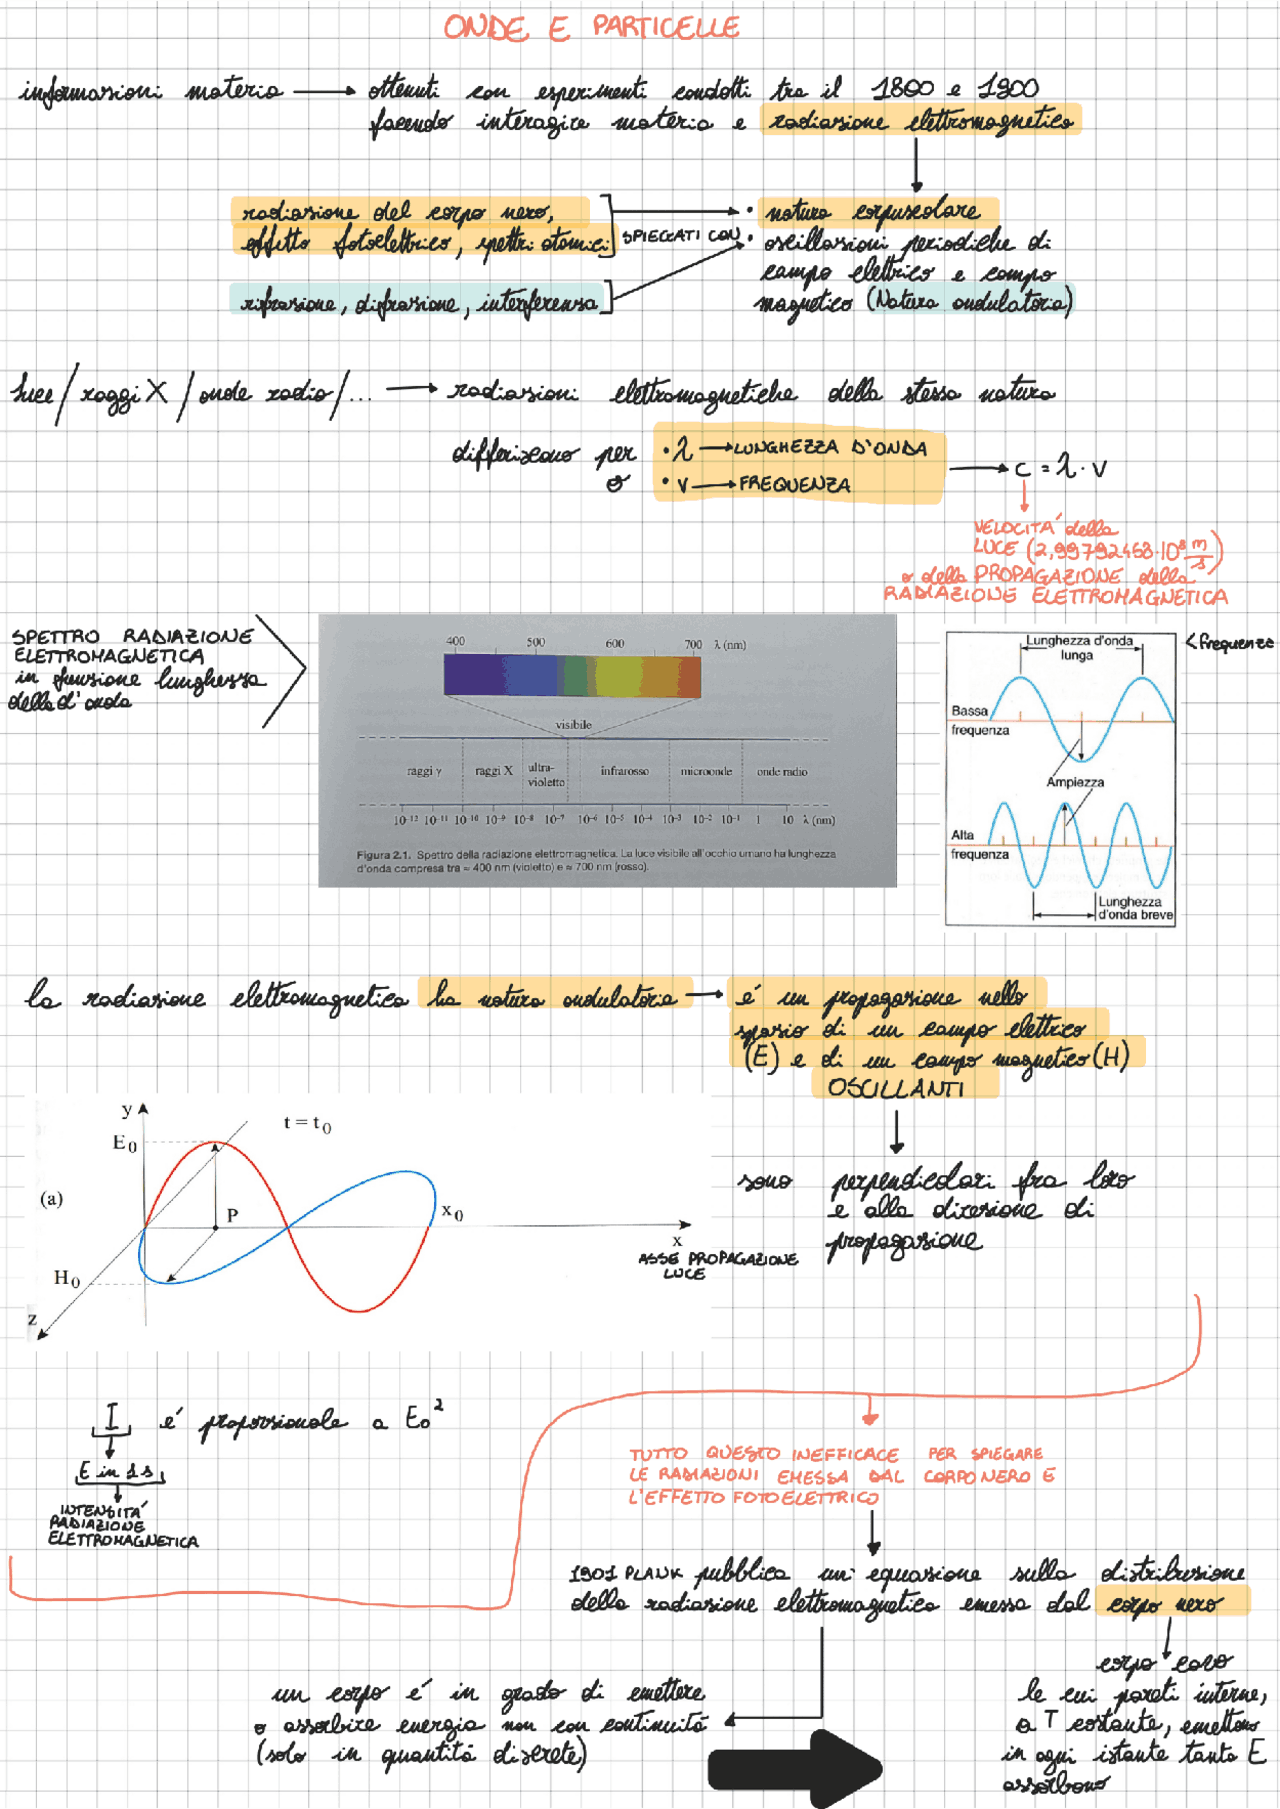 ONDE E PARTICELLE
informazioni materia → ottenuti con esperimenti condotti tra il 1800 e 1900
facendo interagire materia e radiazione elettromagnetica
radiazione del corpo nero,
effetto fotoelettrico, spettri atomici
SPIEGATI CON
rifrazione, difrazione, interferenza
• natura corpuscolare
• oscillazioni periodiche di
campo elettrico e campo
magnetico (Natura ondulatoria)
luce / raggi X / onde radio /... → radiazioni elettromagnetiche della stessa natura
differiscono per
o
• λ → LUNGHEZZA D'ONDA
• ν → FREQUENZA
→ c = λ · ν
VELOCITÁ della
LUCE (2,99792458·10⁸ m/s)
o della PROPAGAZIONE della
RADIAZIONE ELETTROMAGNETICA
SPETTRO RADIAZIONE
ELETTROMAGNETICA
in funzione lunghezza
della d'onda
400 500 600 700 λ (nm)
visibile
raggi γ raggi X ultra-violetto infrarosso microonde onde radio
10⁻¹² 10⁻¹¹ 10⁻¹⁰ 10⁻⁹ 10⁻⁸ 10⁻⁷ 10⁻⁶ 10⁻⁵ 10⁻⁴ 10⁻³ 10⁻² 10⁻¹ 1 10 λ (nm)
Figura 2.1. Spettro della radiazione elettromagnetica. La luce visibile all'occhio umano ha lunghezza
d'onda compresa tra ≈ 400 nm (violetto) e ≈ 700 nm (rosso).
< Frequenze
Lunghezza d'onda
lunga
Bassa
frequenza
Ampiezza
Alta
frequenza
Lunghezza
d'onda breve
la radiazione elettromagnetica ha natura ondulatoria → é un propagazione nello
spazio di un campo elettrico
(E) e di un campo magnetico (H)
OSCILLANTI
sono perpendicolari fra loro
e alla direzione di
propagazione
y
E₀
t = t₀
(a)
P
x₀
x
H₀
z
ASSE PROPAGAZIONE
LUCE
I é proporzionale a E₀²
E in 1s
INTENSITÁ
RADIAZIONE
ELETTROMAGNETICA
TUTTO QUESTO INEFFICACE PER SPIEGARE
LE RADIAZIONI EMESSA DAL CORPO NERO E
L'EFFETTO FOTOELETTRICO
1901 PLANK pubblica un' equazione sulla distribuzione
della radiazione elettromagnetica emessa dal corpo nero
un corpo é in grado di emettere
o assorbire energia non con continuitá
(solo in quantitá discrete)
corpo cavo
le cui pareti interne,
a T costante, emettono
in ogni istante tanta E
assorbono